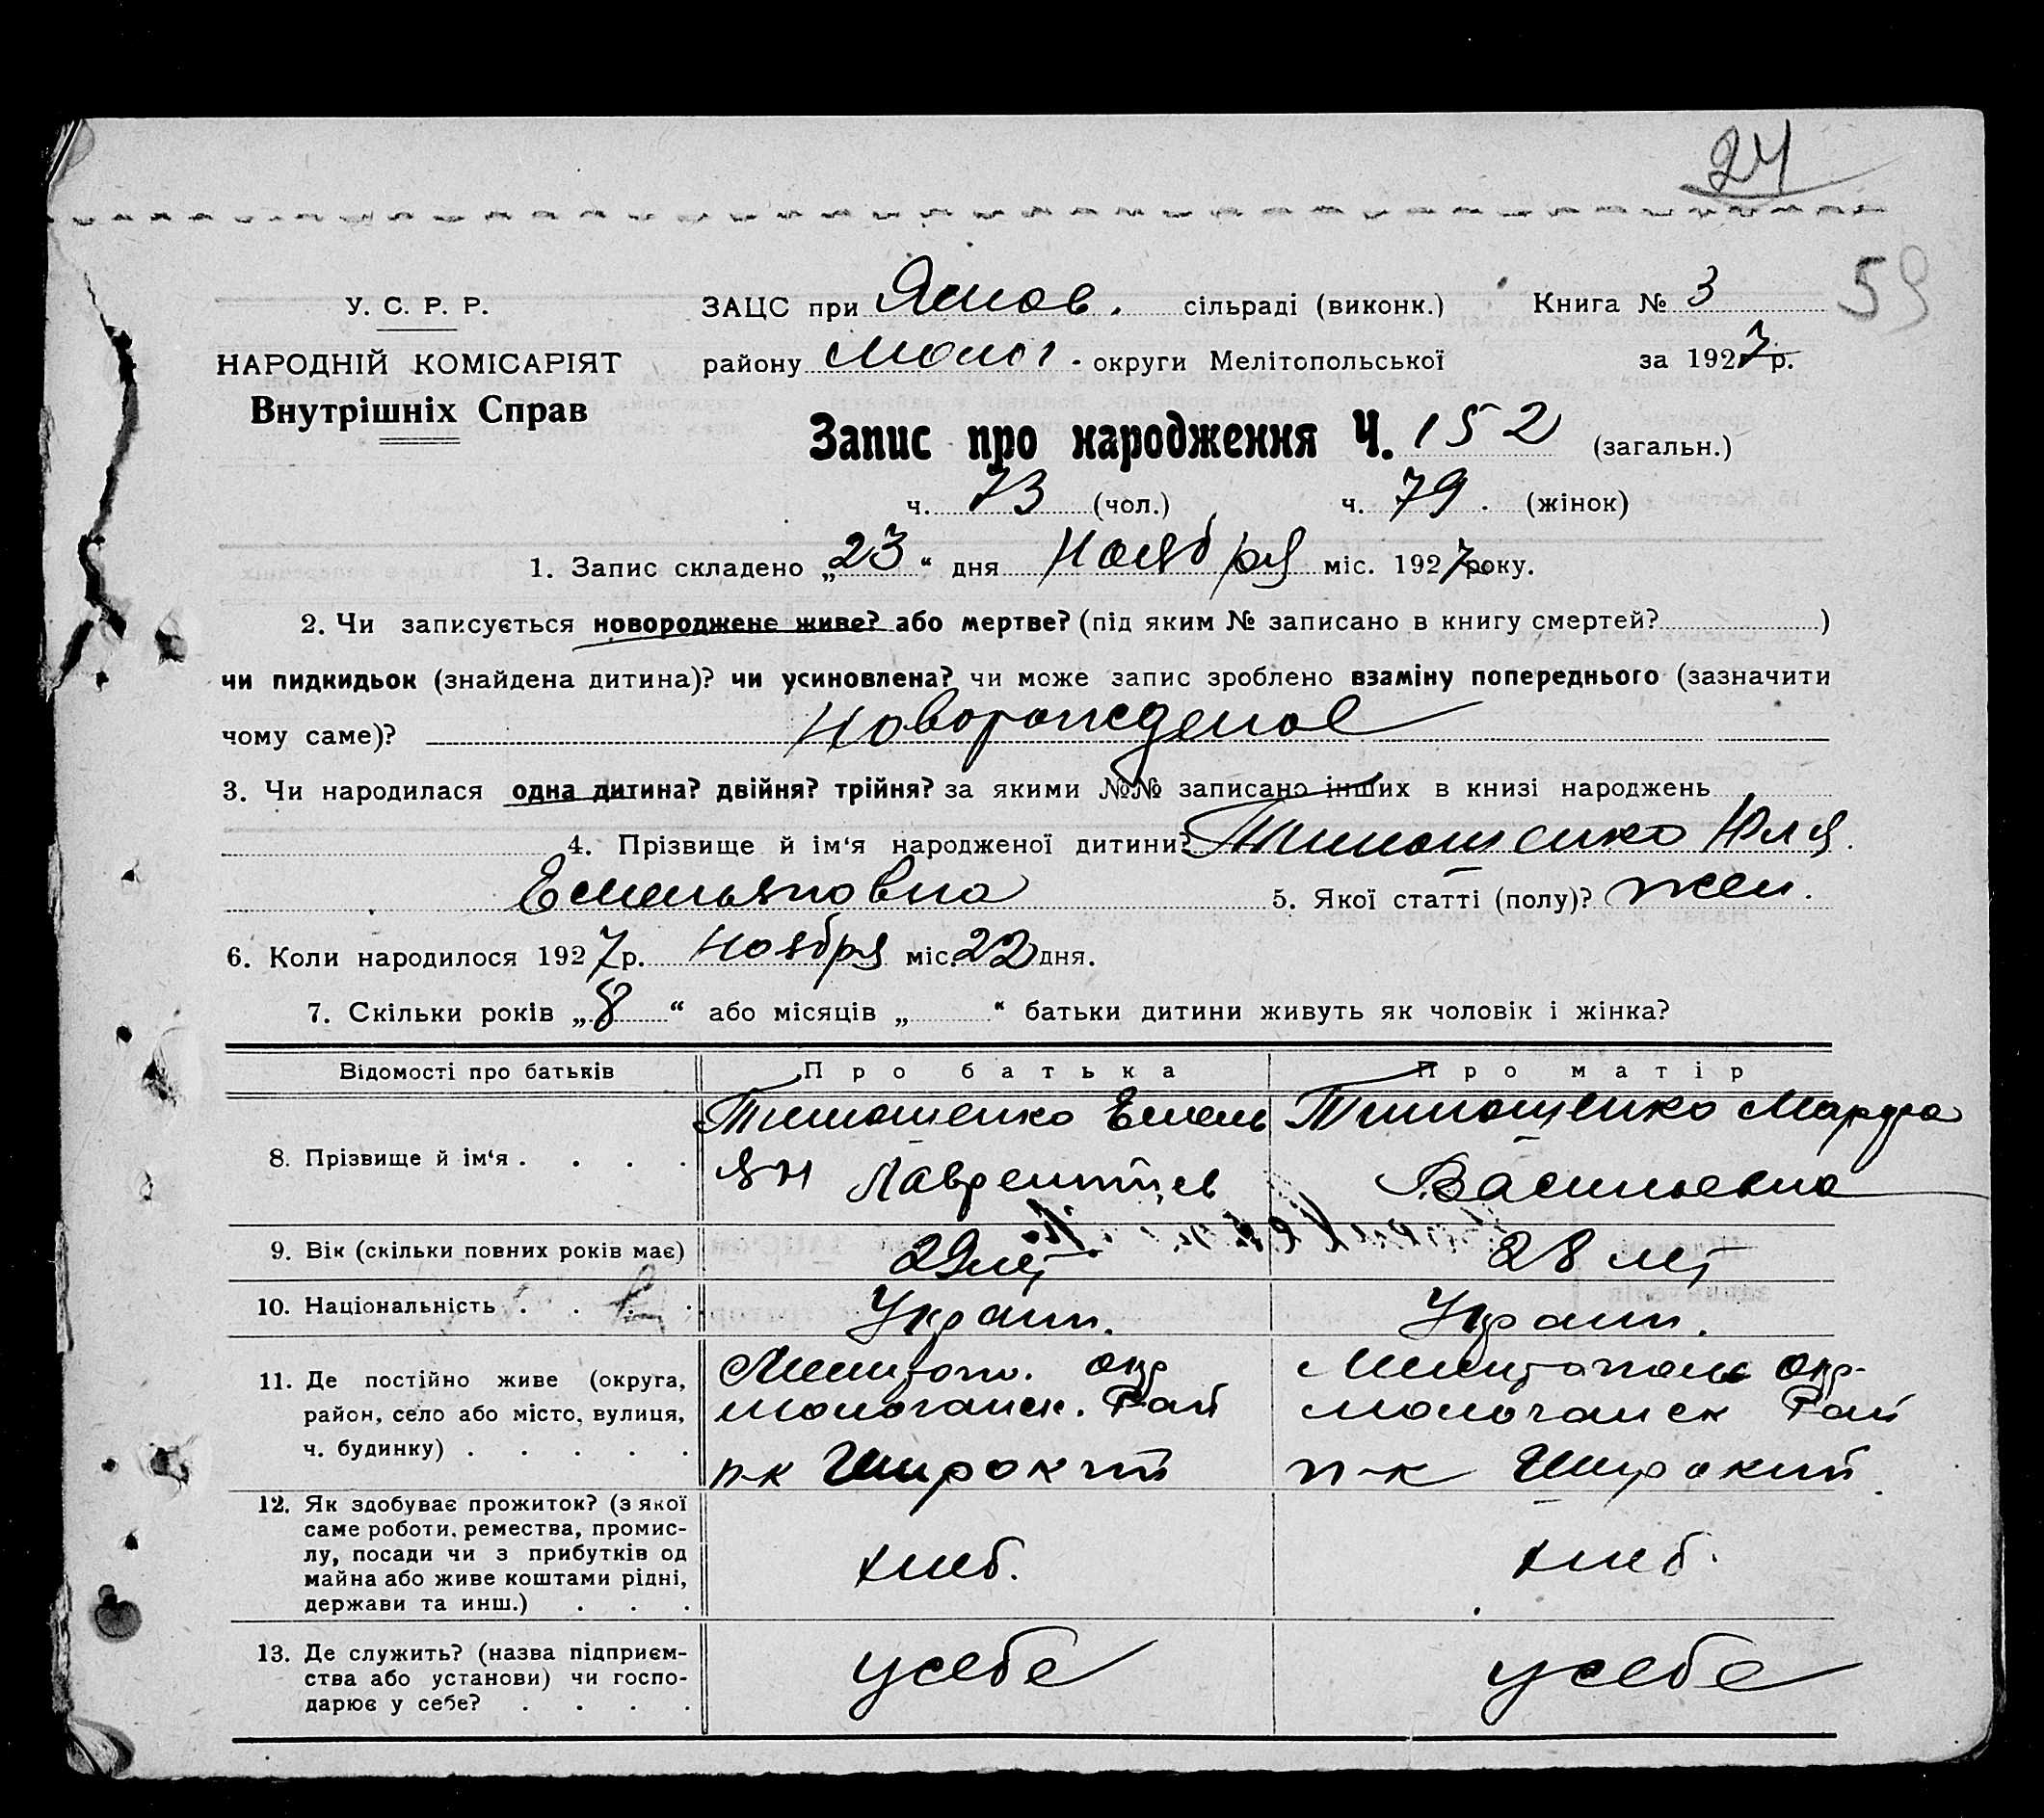 24
59
У. С. Р. Р. ЗАЦС при Яснов. сільраді (виконк.) Книга № 3
НАРОДНІЙ КОМІСАРІЯТ району Молоч. округи Мелітопольської за 1927 р.
Внутрішніх Справ
Запис про народження Ч. 152 (загальн.)
ч. 73 (чол.) ч. 79. (жінок)
1. Запис складено „23“ дня Ноября міс. 1927 року.
2. Чи записується новороджене живе? або мертве? (під яким № записано в книгу смертей? )
чи пидкидьок (знайдена дитина)? чи усиновлена? чи може запис зроблено взаміну попереднього (зазначити
чому саме)? Новорожденое
3. Чи народилася одна дитина? двійня? трійня? за якими №№ записано інших в книзі народжень
4. Прізвище й ім‘я народженої дитини? Тимошенко Юля
Емельяновна 5. Якої статті (полу)? жен.
6. Коли народилося 1927 р. Ноября міс. 22 дня.
7. Скільки років „8“ або місяців „ “ батьки дитини живуть як чоловік і жінка?
Відомості про батьків Про батька Про матір
8. Прізвище й ім‘я . . . . Тимошенко Емель Тимошенко Марфа
ян Лаврентиев Васильевна
9. Вік (скільки повних років має) 29 лет 28 лет
10. Національність . . . . Украин. Украин.
11. Де постійно живе (округа, Мелитоп. окр Мелитополь окр.
район, село або місто, вулиця, молочанск. Рай молочанск Рай
ч. будинку) . . . . . п-к Широкий п-к Широкий
12. Як здобуває прожиток? (з якої
саме роботи, ремества, промис-
лу, посади чи з прибутків од хлеб. хлеб.
майна або живе коштами рідні,
держави та инш.) . . .
13. Де служить? (назва підприєм-
ства або установи) чи госпо- усебе усебе
дарює у себе? . . . .